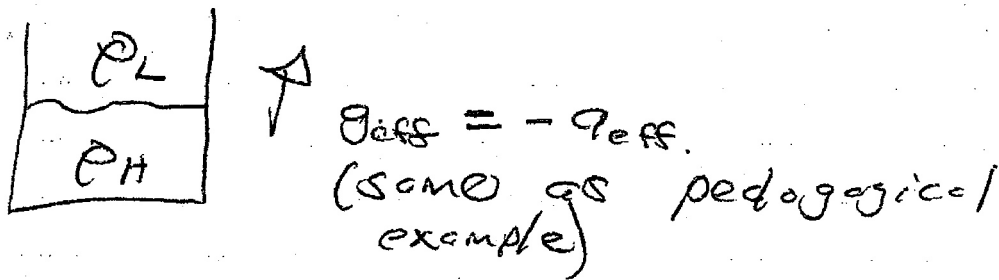 ρL
ρH
g_eff = - a_eff.
(same as pedagogical
example)